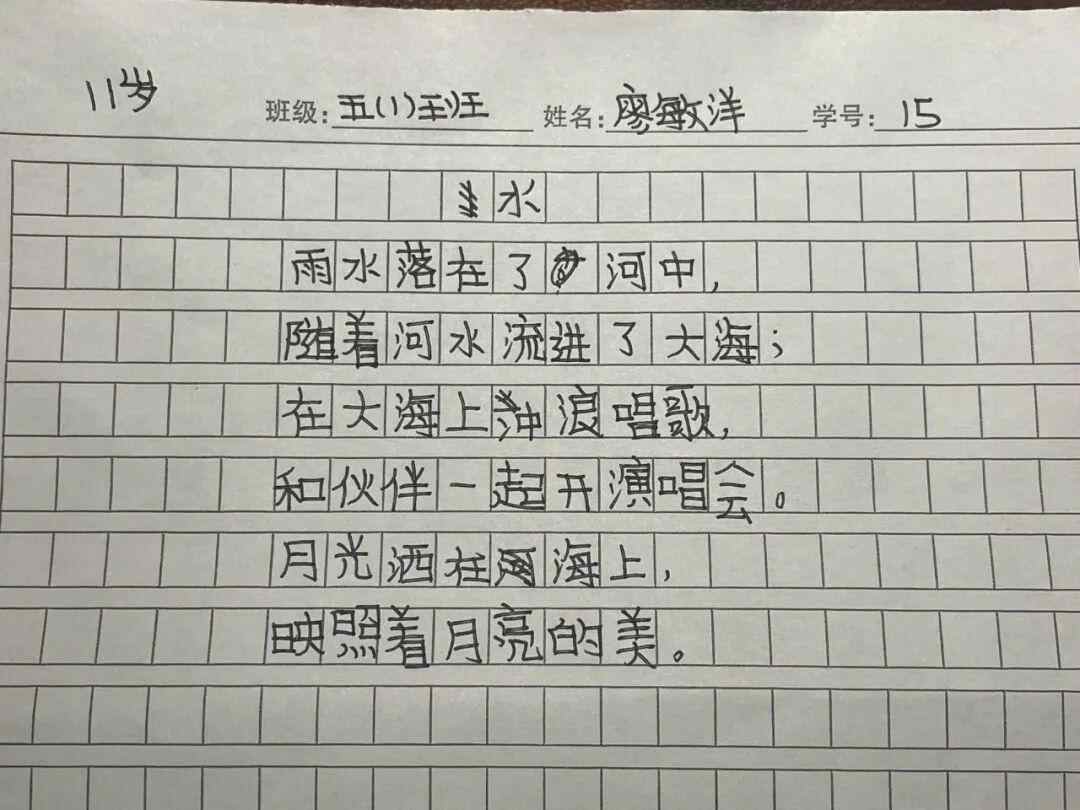 11岁
班级:五(1)班 姓名:廖敏洋 学号:15
水
雨水落在了河中，
随着河水流进了大海；
在大海上冲浪唱歌，
和伙伴一起开演唱会。
月光洒在海上，
映照着月亮的美。